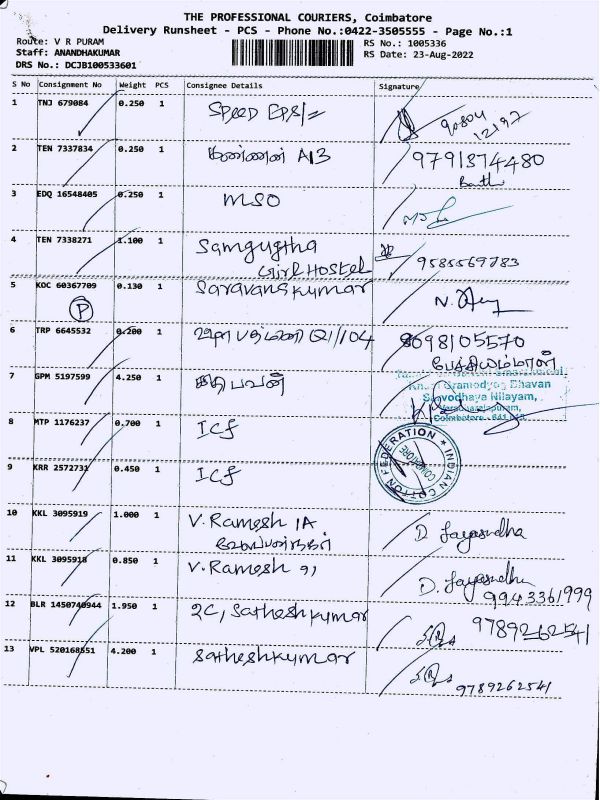 THE PROFESSIONAL COURIERS, Coimbatore
Delivery Runsheet - PCS - Phone No.:0422-3505555 - Page No.:1
Route: V R PURAM
RS No.: 1005336
Staff: ANANDHAKUMAR
RS Date: 23-Aug-2022
DRS No.: DCJB100533601
S No Consignment No Weight PCS Consignee Details Signature
1 TNJ 679084 0.250 1 SPEED
2 TEN 7337834 0.250 1 கண்ணன் A13 9791374480
3 EDQ 16548405 0.250 1 MSO
4 TEN 7338271 1.100 1 Samyugtha 9585569783
Girl Hostel
5 KOC 60367709 0.130 1 Saravanakumar
P
6 TRP 6645532 0.200 1 8098105570
பேச்சியம்மாள்
7 GPM 5197599 4.250 1 பவன்
Gramodyog Bhavan
Sarvodhaya Nilayam,
Coimbatore
8 MTP 1176237 0.700 1 ICF
INDIAN COTTON FEDERATION
COIMBATORE
9 KRR 2572731 0.450 1 ICF
10 KKL 3095919 1.000 1 V. Ramesh 1A D. Jayasudha
11 KKL 3095918 0.850 1 V. Ramesh D. Jayasudha
9943361999
12 BLR 1450740944 1.950 1 2C, Satheshkumar 9789262541
13 VPL 520168551 4.200 1 Satheshkumar
9789262541